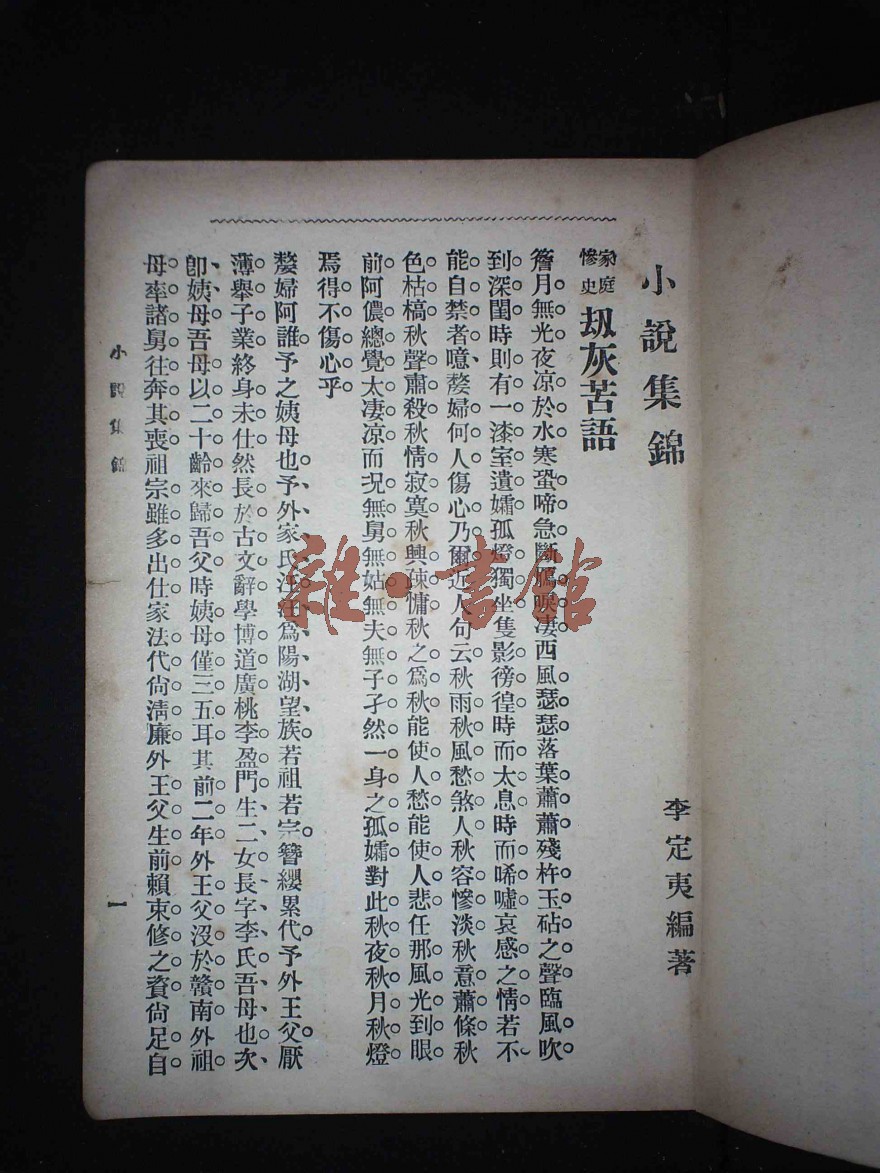 小說集錦
李定夷編著
家庭慘史 刼灰苦語
簷月無光夜凉於水寒蛩啼急斷鴈唳淒西風瑟瑟落葉蕭蕭殘杵玉砧之聲臨風吹
到深閨時則有一漆室遺孀孤燈獨坐隻影徬徨時而太息時而唏噓哀感之情若不
能自禁者噫嫠婦何人傷心乃爾近人句云秋雨秋風愁煞人秋容慘淡秋意蕭條秋
色枯槁秋聲肅殺秋情寂寞秋興疎慵秋之爲秋能使人愁能使人悲任那風光到眼
前阿儂總覺太凄凉而况無舅無姑無夫無子孑然一身之孤孀對此秋夜秋月秋燈
焉得不傷心乎
嫠婦阿誰予之姨母也予外家氏汪汪爲陽湖望族若祖若宗簪纓累代予外王父厭
薄舉子業終身未仕然長於古文辭學博道廣桃李盈門生二女長字李氏吾母也次
卽姨母吾母以二十齡來歸吾父時姨母僅三五耳其前二年外王父沒於贛南外祖
母率諸舅往奔其喪祖宗雖多出仕家法代尙淸廉外王父生前賴束修之資尙足自
小說集錦
一
雜·書館